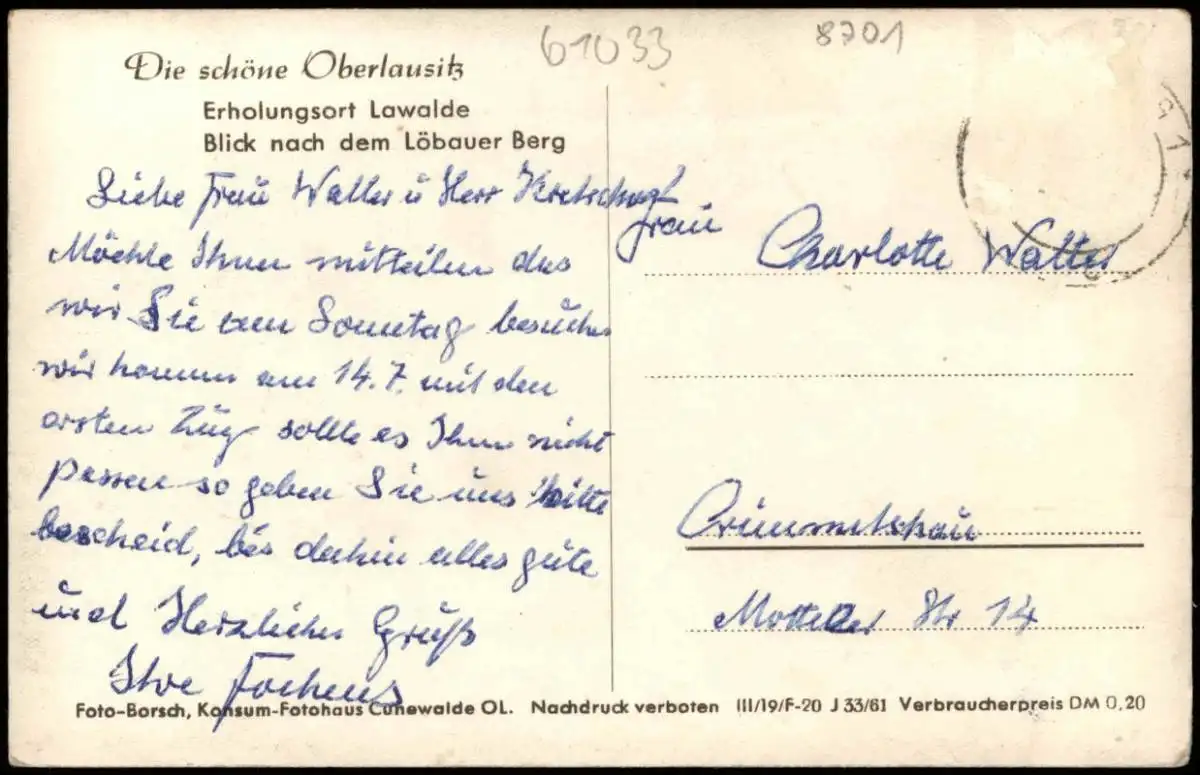 61033
8701
Die schöne Oberlausitz
Erholungsort Lawalde
Blick nach dem Löbauer Berg
Liebe Frau Walter u Herr
Möchte Ihnen mitteilen das
wir Sie am Sonntag besuchen
wir kommen am 14.7. mit den
ersten Zug sollte es Ihnen nicht
passen so geben Sie uns bitte
bescheid, bis dahin alles gute
und Herzlichen Gruß
Ihre
Frau Charlotte Walter
Crimmitschau
Str 14
Foto-Borsch, Konsum-Fotohaus Cunewalde OL. Nachdruck verboten III/19/F-20 J 33/61 Verbraucherpreis DM 0,20